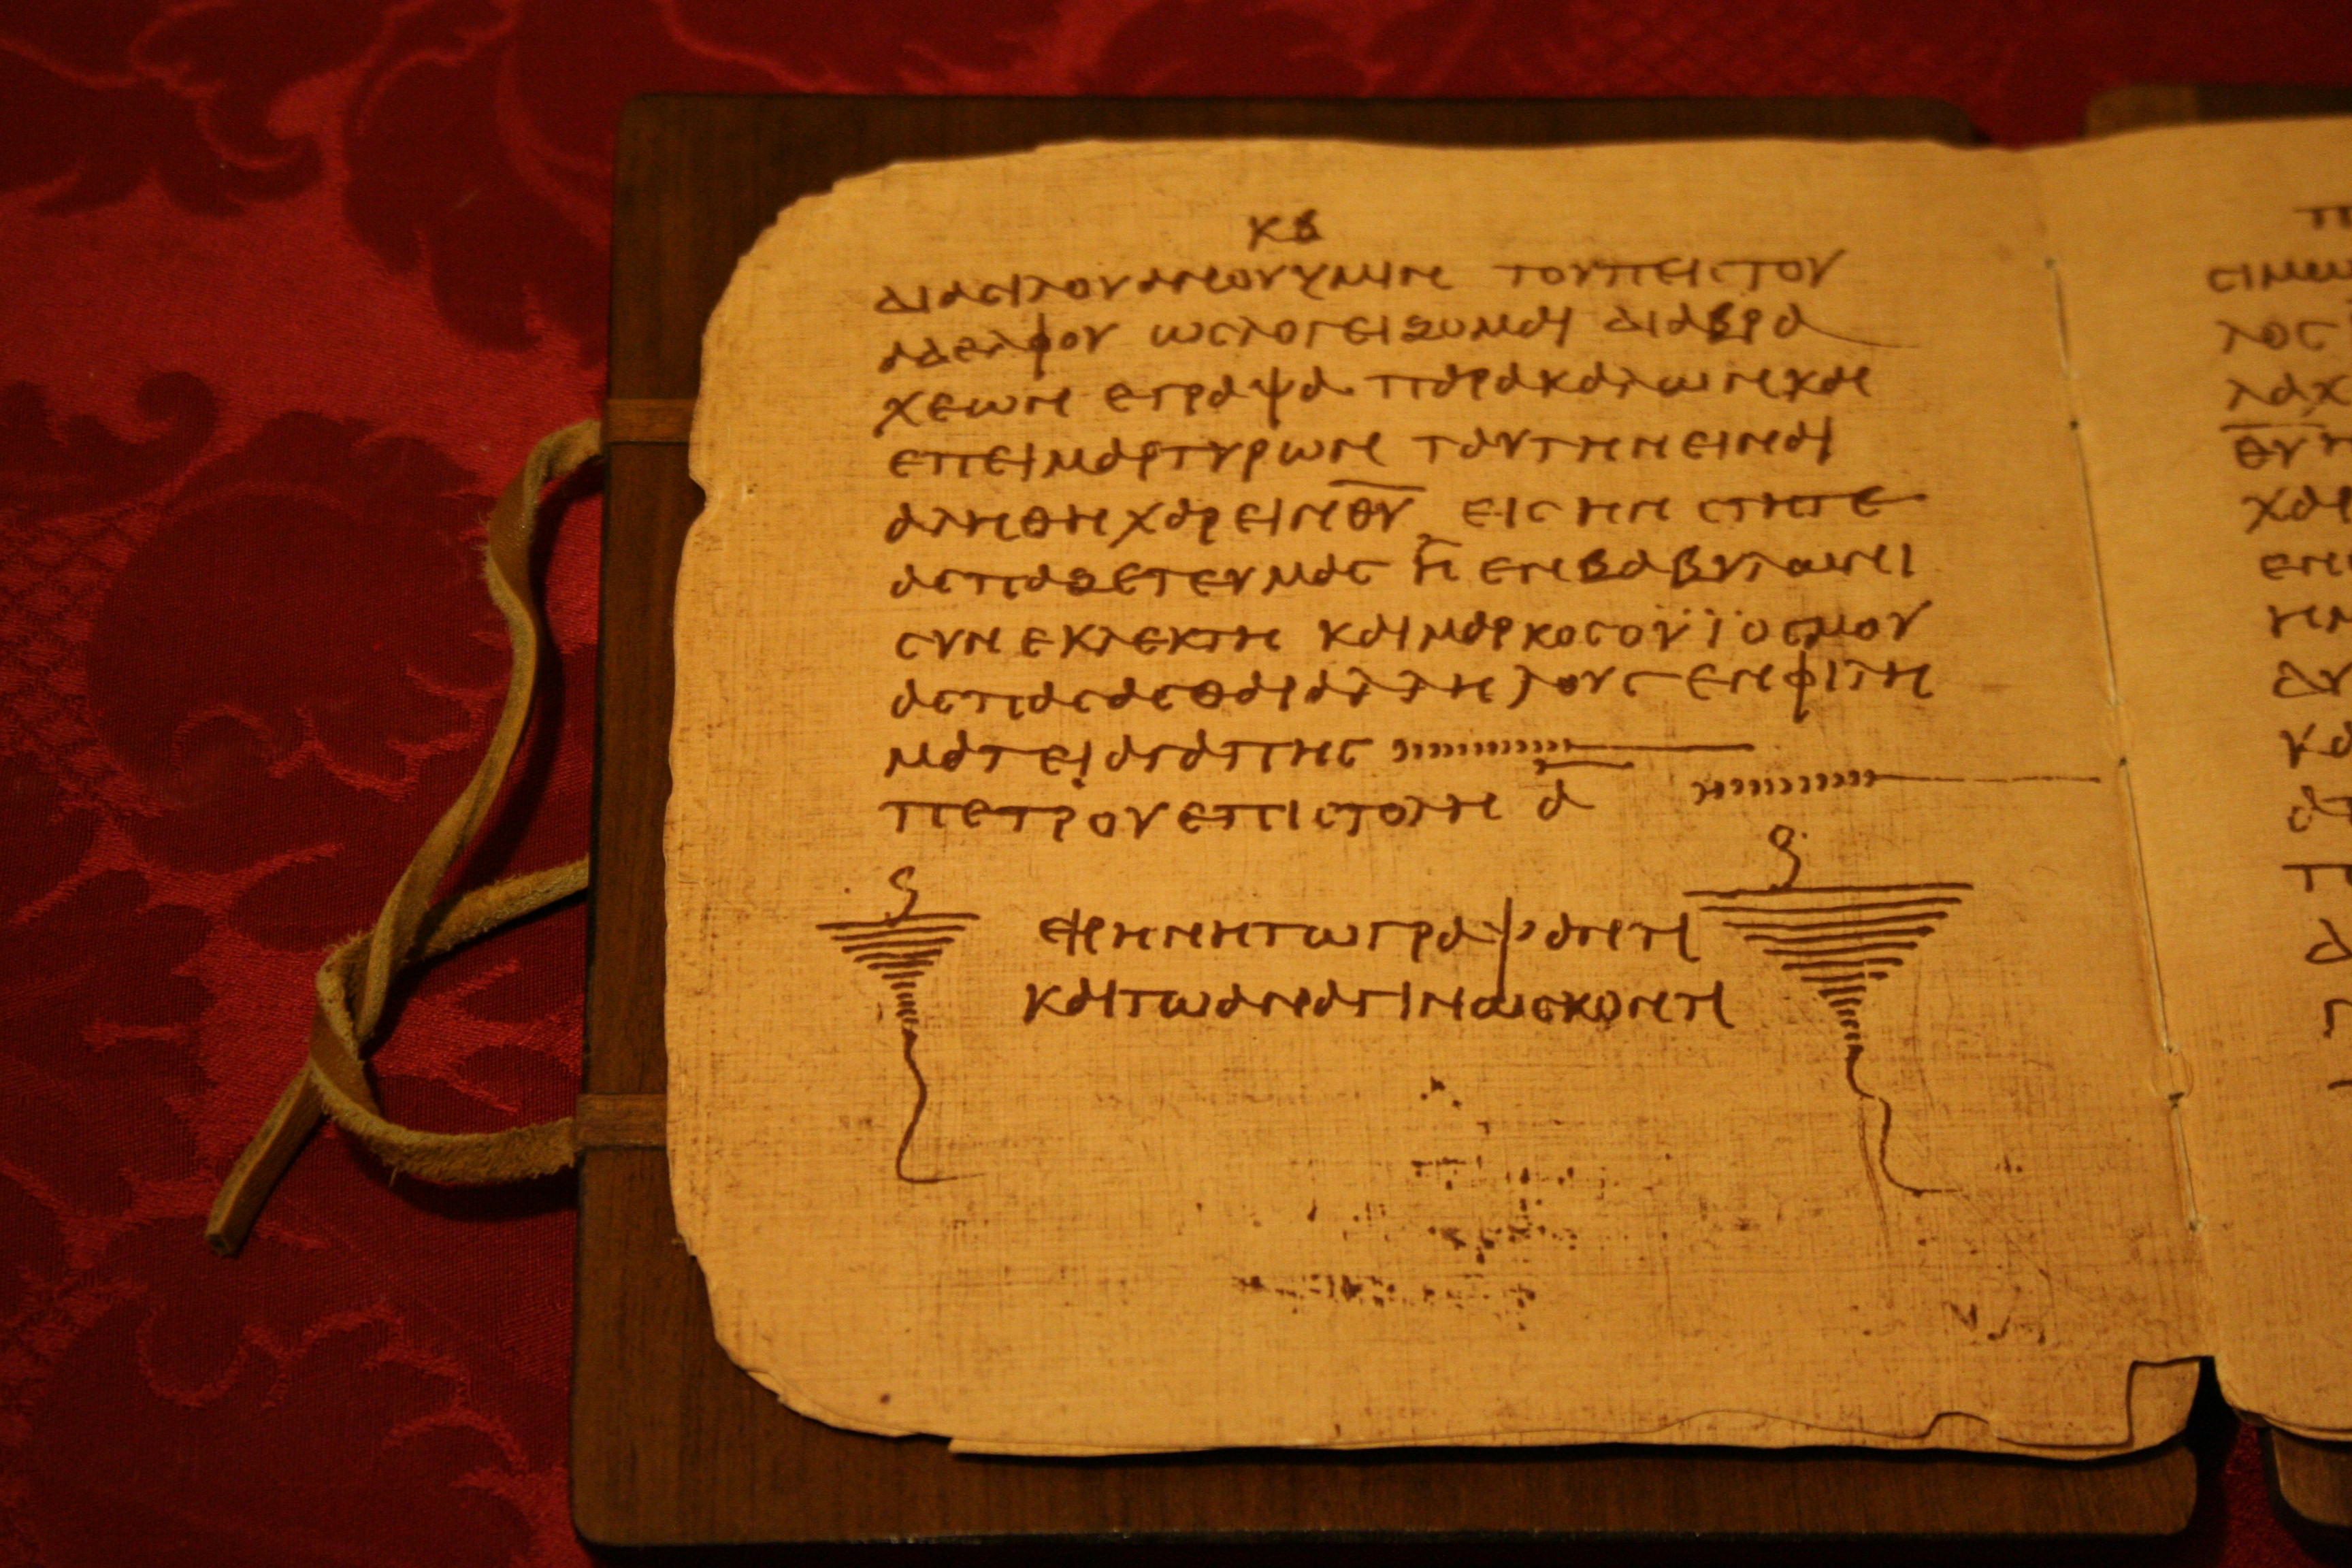 κβ
διαϲιλουανουυμιν τουπειϲτου
αδελφου ωϲλογειζομαι διαβρα
χεων εγραψα παρακαλωνκαι
επειμαρτυρων ταυτηνειναι
αληθηχαρειν θ̅υ̅ ειϲ ην ϲτητε
αϲπαζετευμαϲ η ενβαβυλωνι
ϲυνεκλεκτη καιμαρκοϲουϊοϲμου
αϲπαϲαϲθαιαλληλουϲ ενφιλη
ματειαγαπηϲ
πετρουεπιϲτολη α̅
ειρηνητωγραψαντι
καιτωαναγινωϲκοντι